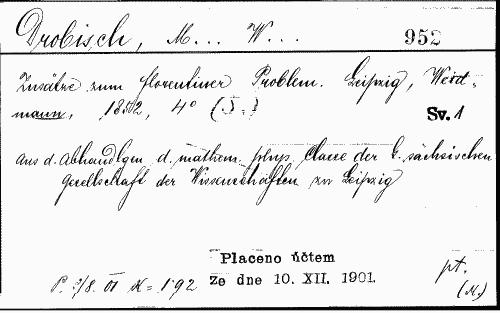 Drobisch, M... W...
952
Zusätze zum florentiner Problem. Leipzig, Weid-
mann, 1852, 4° (S.)
Sv. 1
Aus d. Abhandlgen d. mathem. phys. Classe der k. sächsischen
Gesellschaft der Wissenschaften zu Leipzig
Placeno účtem
ze dne 10. XII. 1901.
P. 3/8. 01 K = 1.92
pt.
(M.)